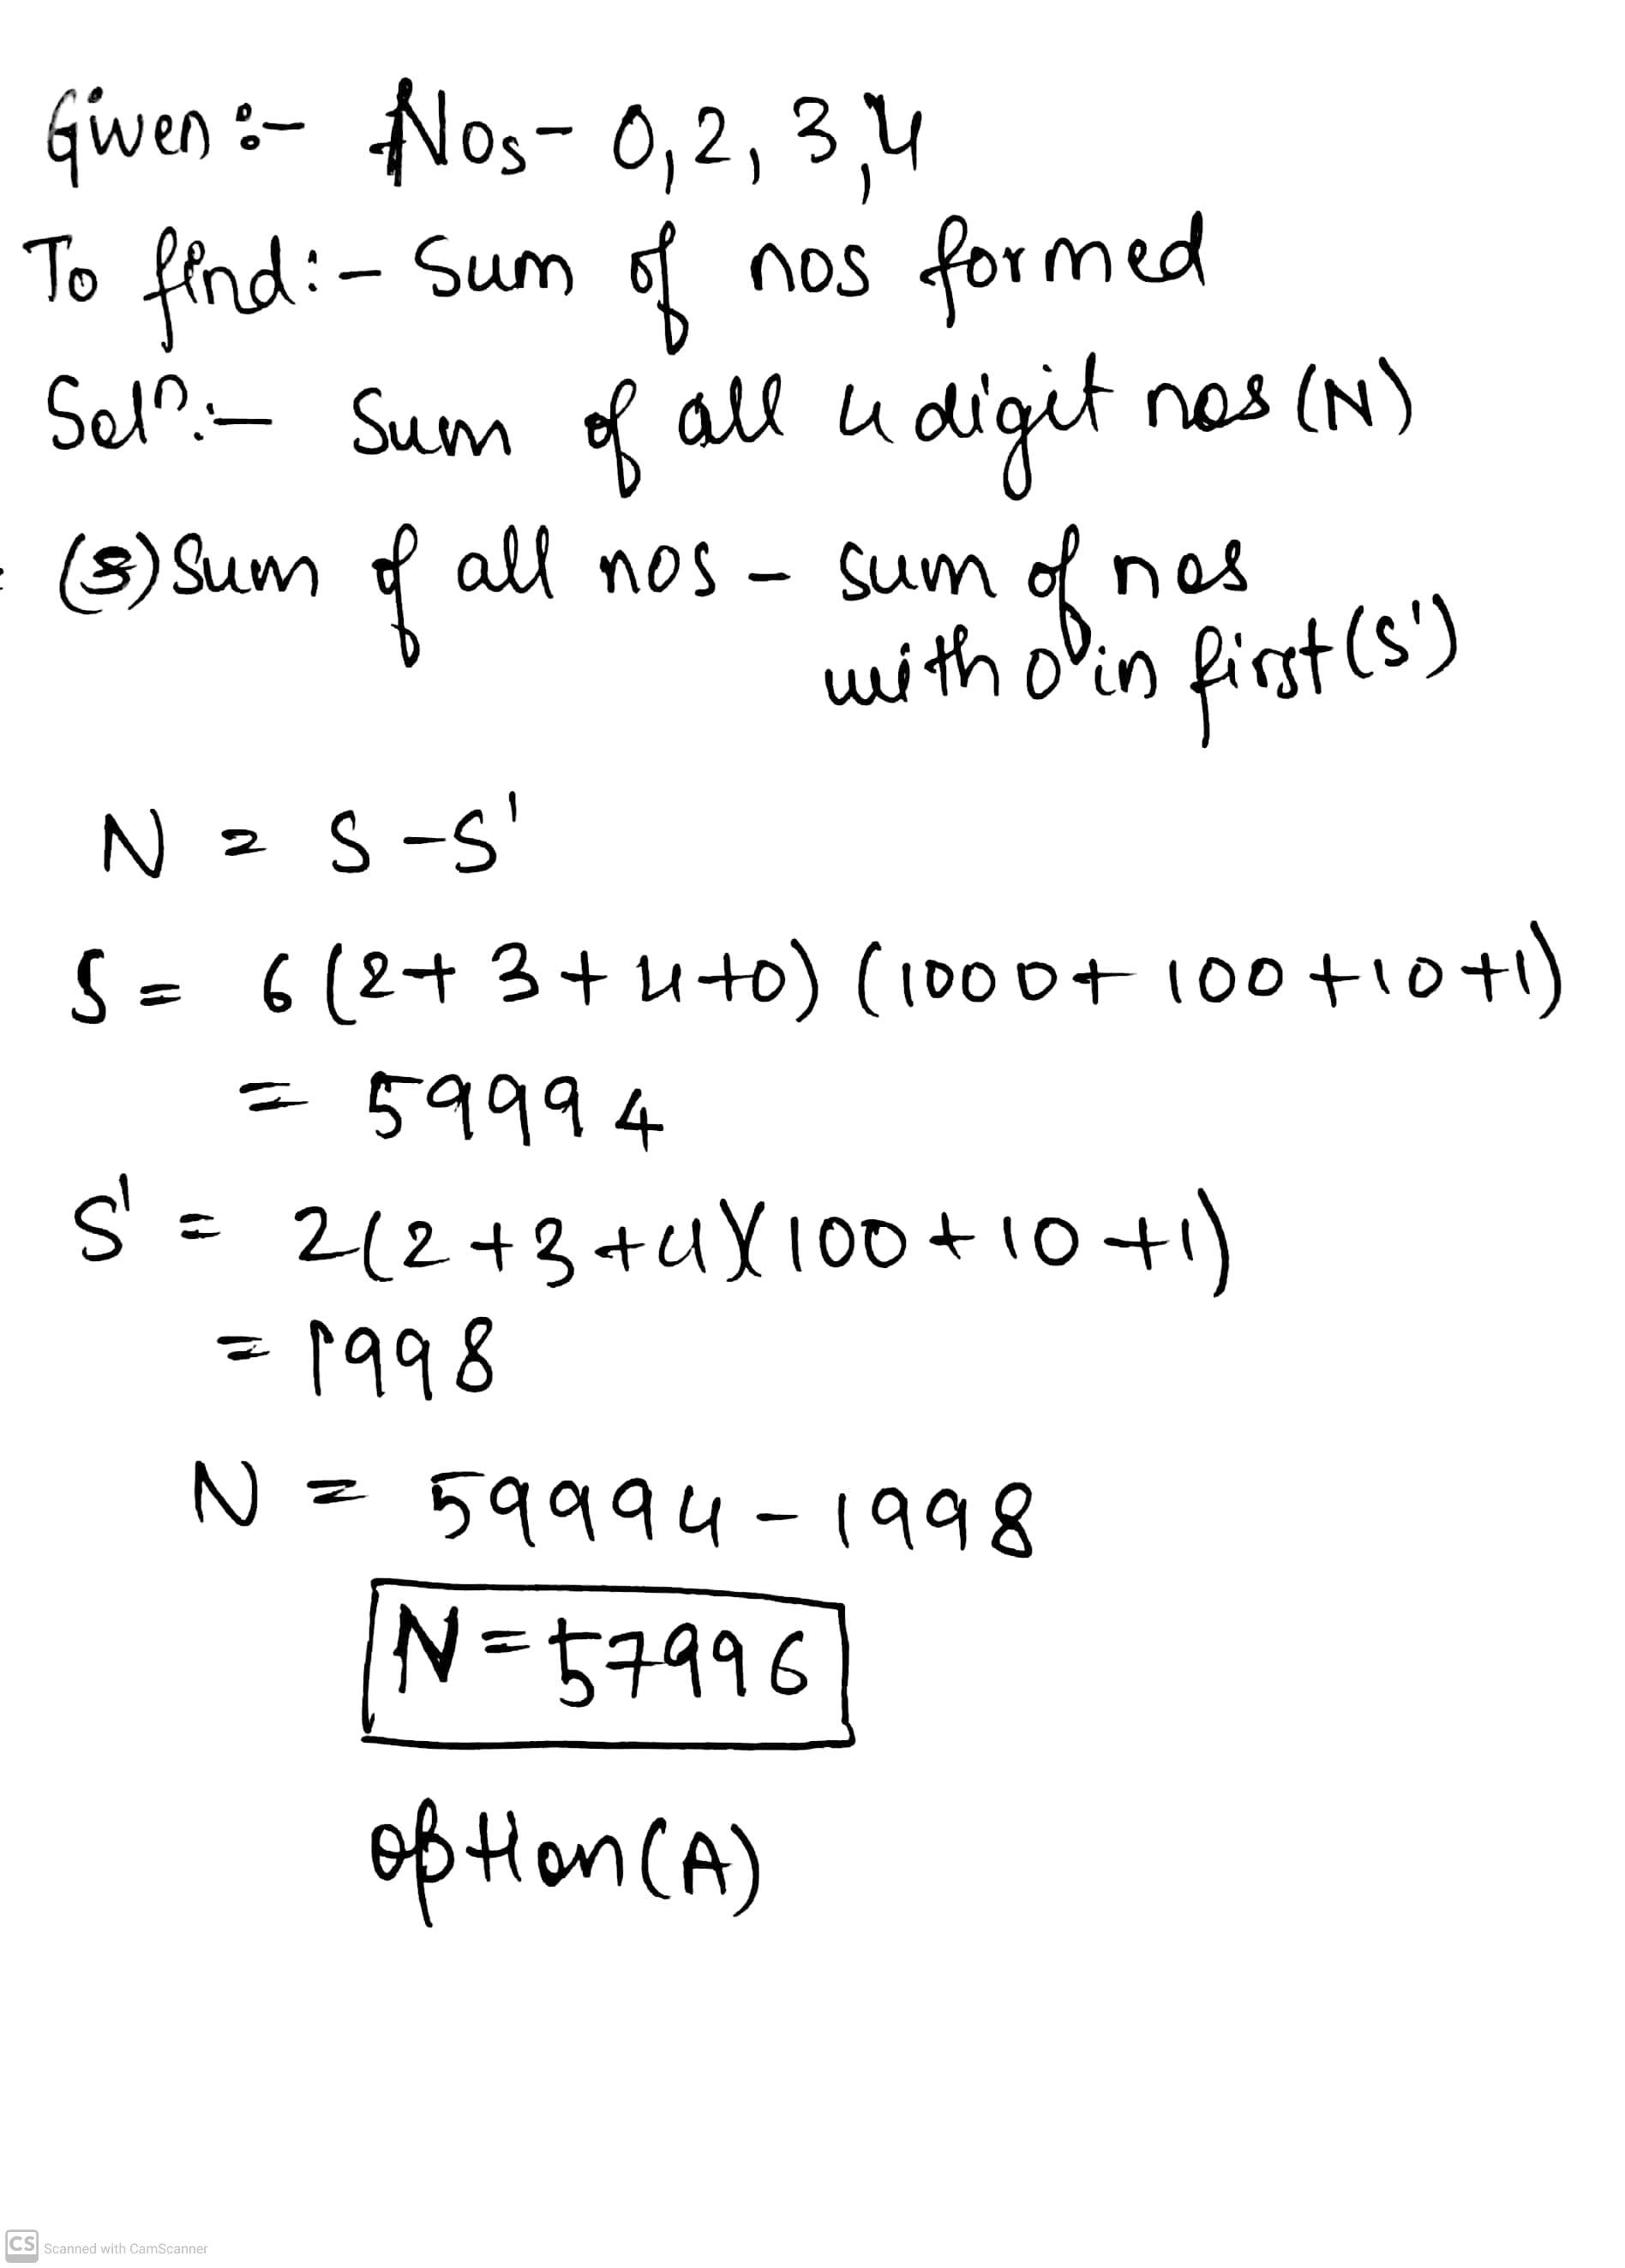 Given :- Nos- 0, 2, 3, 4
To find :- Sum of nos formed
Solⁿ:- Sum of all 4 digit nos (N)
= (S) Sum of all nos - sum of nos
with 0 in first (S')
N = S - S'
S = 6 (2+ 3 + 4 +0) (1000+ 100 +10 +1)
= 59994
S' = 2(2 +3 +4)(100 + 10 +1)
= 1998
N = 59994 - 1998
N = 57996
option (A)
CS Scanned with CamScanner